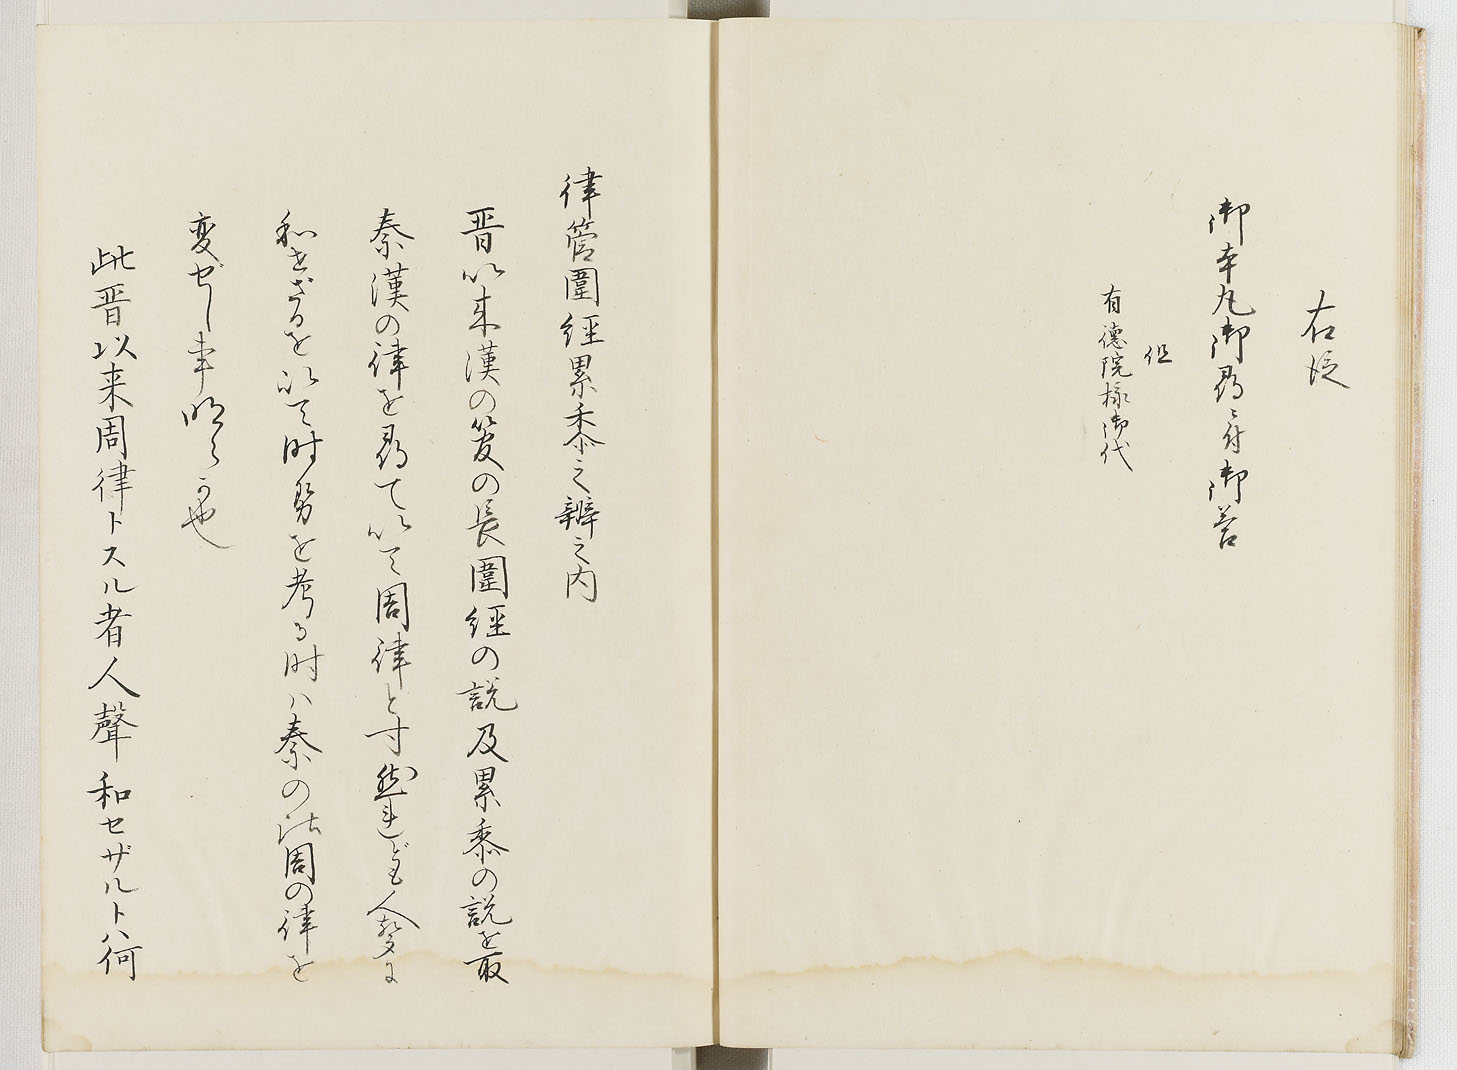 右近
御本丸御尋ニ付御答
但
有徳院様御代
律管圍經累黍之辨之内
晋以来漢の笺の長圍經の説及累黍の説を取
秦漢の律を尋て以て周律と寸然連ども人聲に
和せざるを以て時勢を考る時ハ秦の法周の律を
変ぜし事明らか也
此晋以来周律トスル者人聲和セザルトハ何